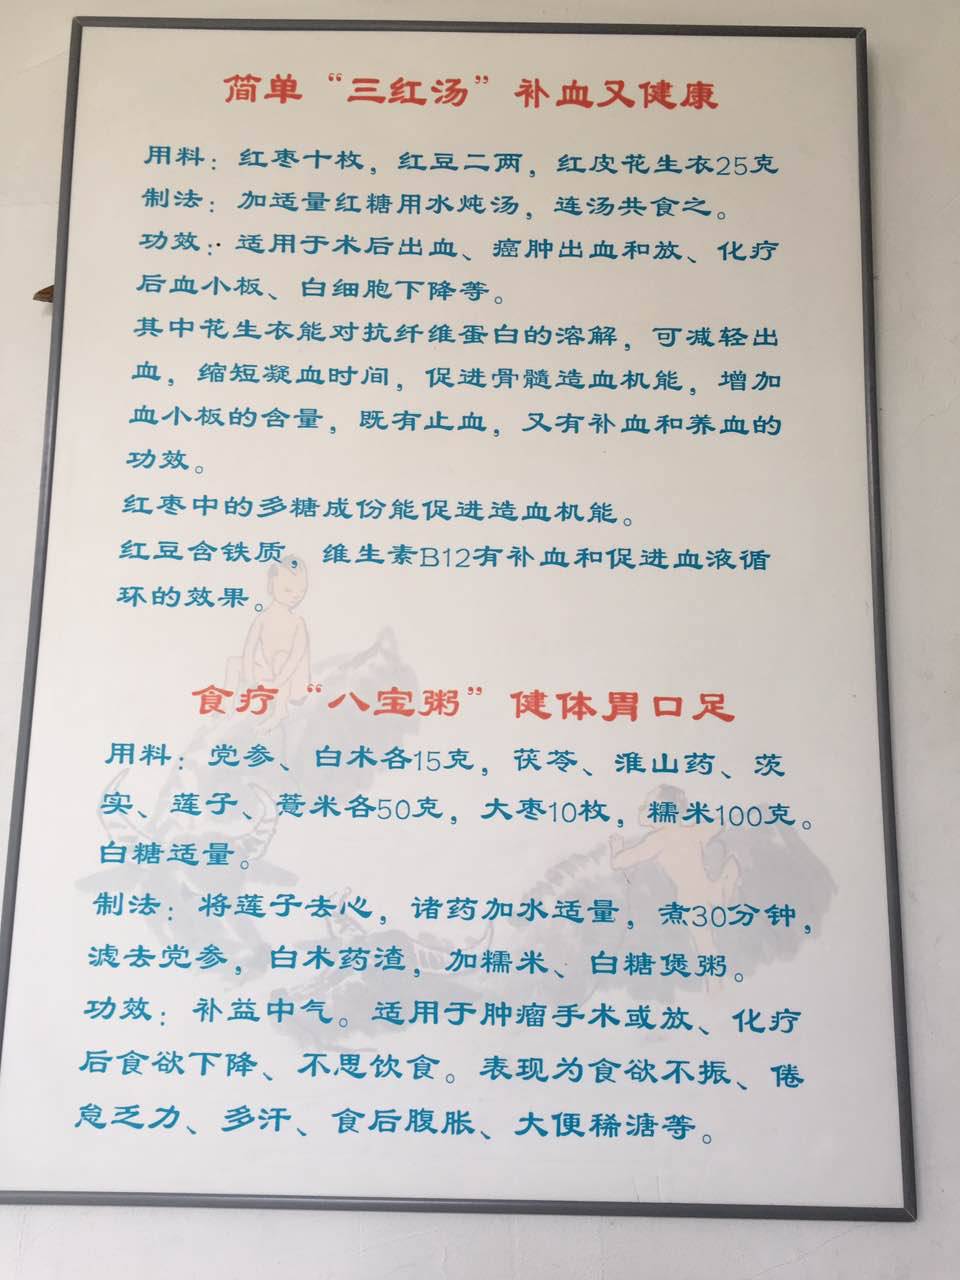 简单“三红汤”补血又健康
用料：红枣十枚，红豆二两，红皮花生衣25克
制法：加适量红糖用水炖汤，连汤共食之。
功效：适用于术后出血、癌肿出血和放、化疗
后血小板、白细胞下降等。
其中花生衣能对抗纤维蛋白的溶解，可减轻出
血，缩短凝血时间，促进骨髓造血机能，增加
血小板的含量，既有止血，又有补血和养血的
功效。
红枣中的多糖成份能促进造血机能。
红豆含铁质，维生素B12有补血和促进血液循
环的效果。
食疗“八宝粥”健体胃口足
用料：党参、白术各15克，茯苓、淮山药、茨
实、莲子、薏米各50克，大枣10枚，糯米100克。
白糖适量。
制法：将莲子去心，诸药加水适量，煮30分钟，
滤去党参，白术药渣，加糯米、白糖煲粥。
功效：补益中气。适用于肿瘤手术或放、化疗
后食欲下降、不思饮食。表现为食欲不振、倦
怠乏力、多汗、食后腹胀、大便稀溏等。